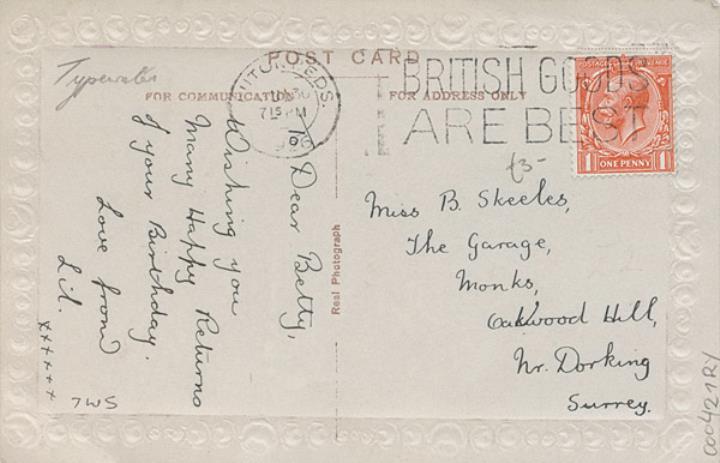 Typewriter
POST CARD
FOR COMMUNICATION
FOR ADDRESS ONLY
LUTON, BEDS.
7 15 PM
BRITISH GOODS
ARE BEST
POSTAGE REVENUE
1 1
ONE PENNY
£3-
To Dear Betty,
Wishing you
Many Happy Returns
of your Birthday.
Love from
Lil.
xxxxxx
7WS
Real Photograph
Miss B. Skeeles,
The Garage,
Monks,
Oakwood Hill,
Nr. Dorking
Surrey.
COO421RY